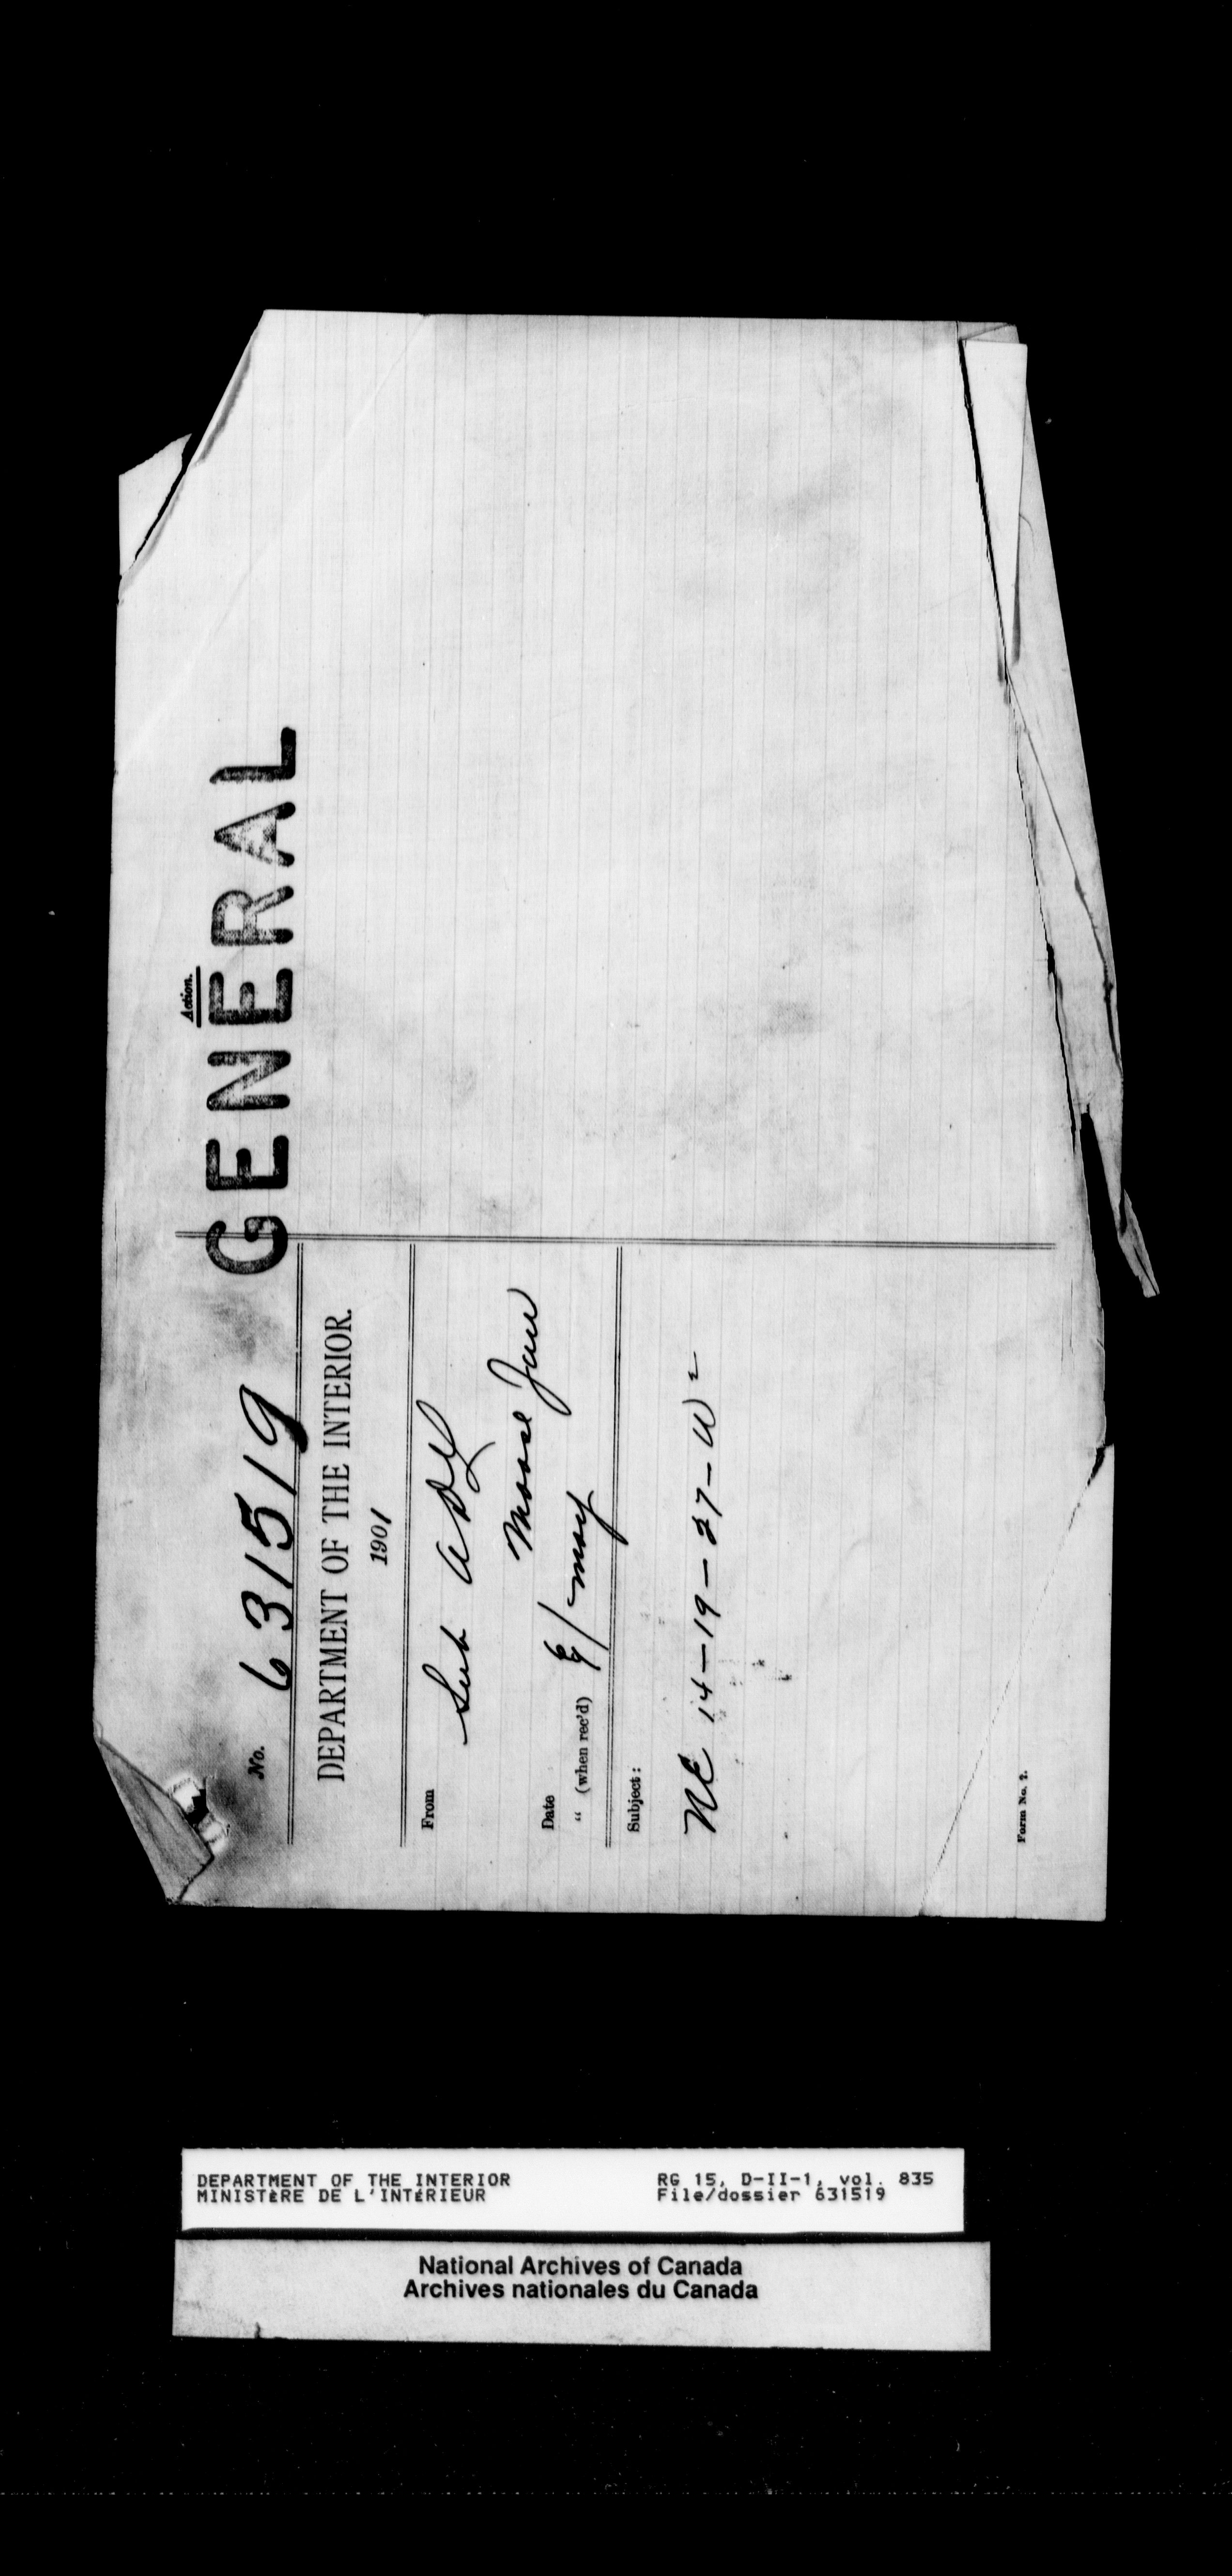 No. 631519
GENERAL
Action.
DEPARTMENT OF THE INTERIOR.
1901
From
Sub A D L
Moose Jaw
Date
" (when rec'd)
/ may
Subject:
NE 14-19-27-W2
Form No. 2.
DEPARTMENT OF THE INTERIOR
MINISTÈRE DE L'INTÉRIEUR
RG 15, D-II-1, vol. 835
File/dossier 631519
National Archives of Canada
Archives nationales du Canada